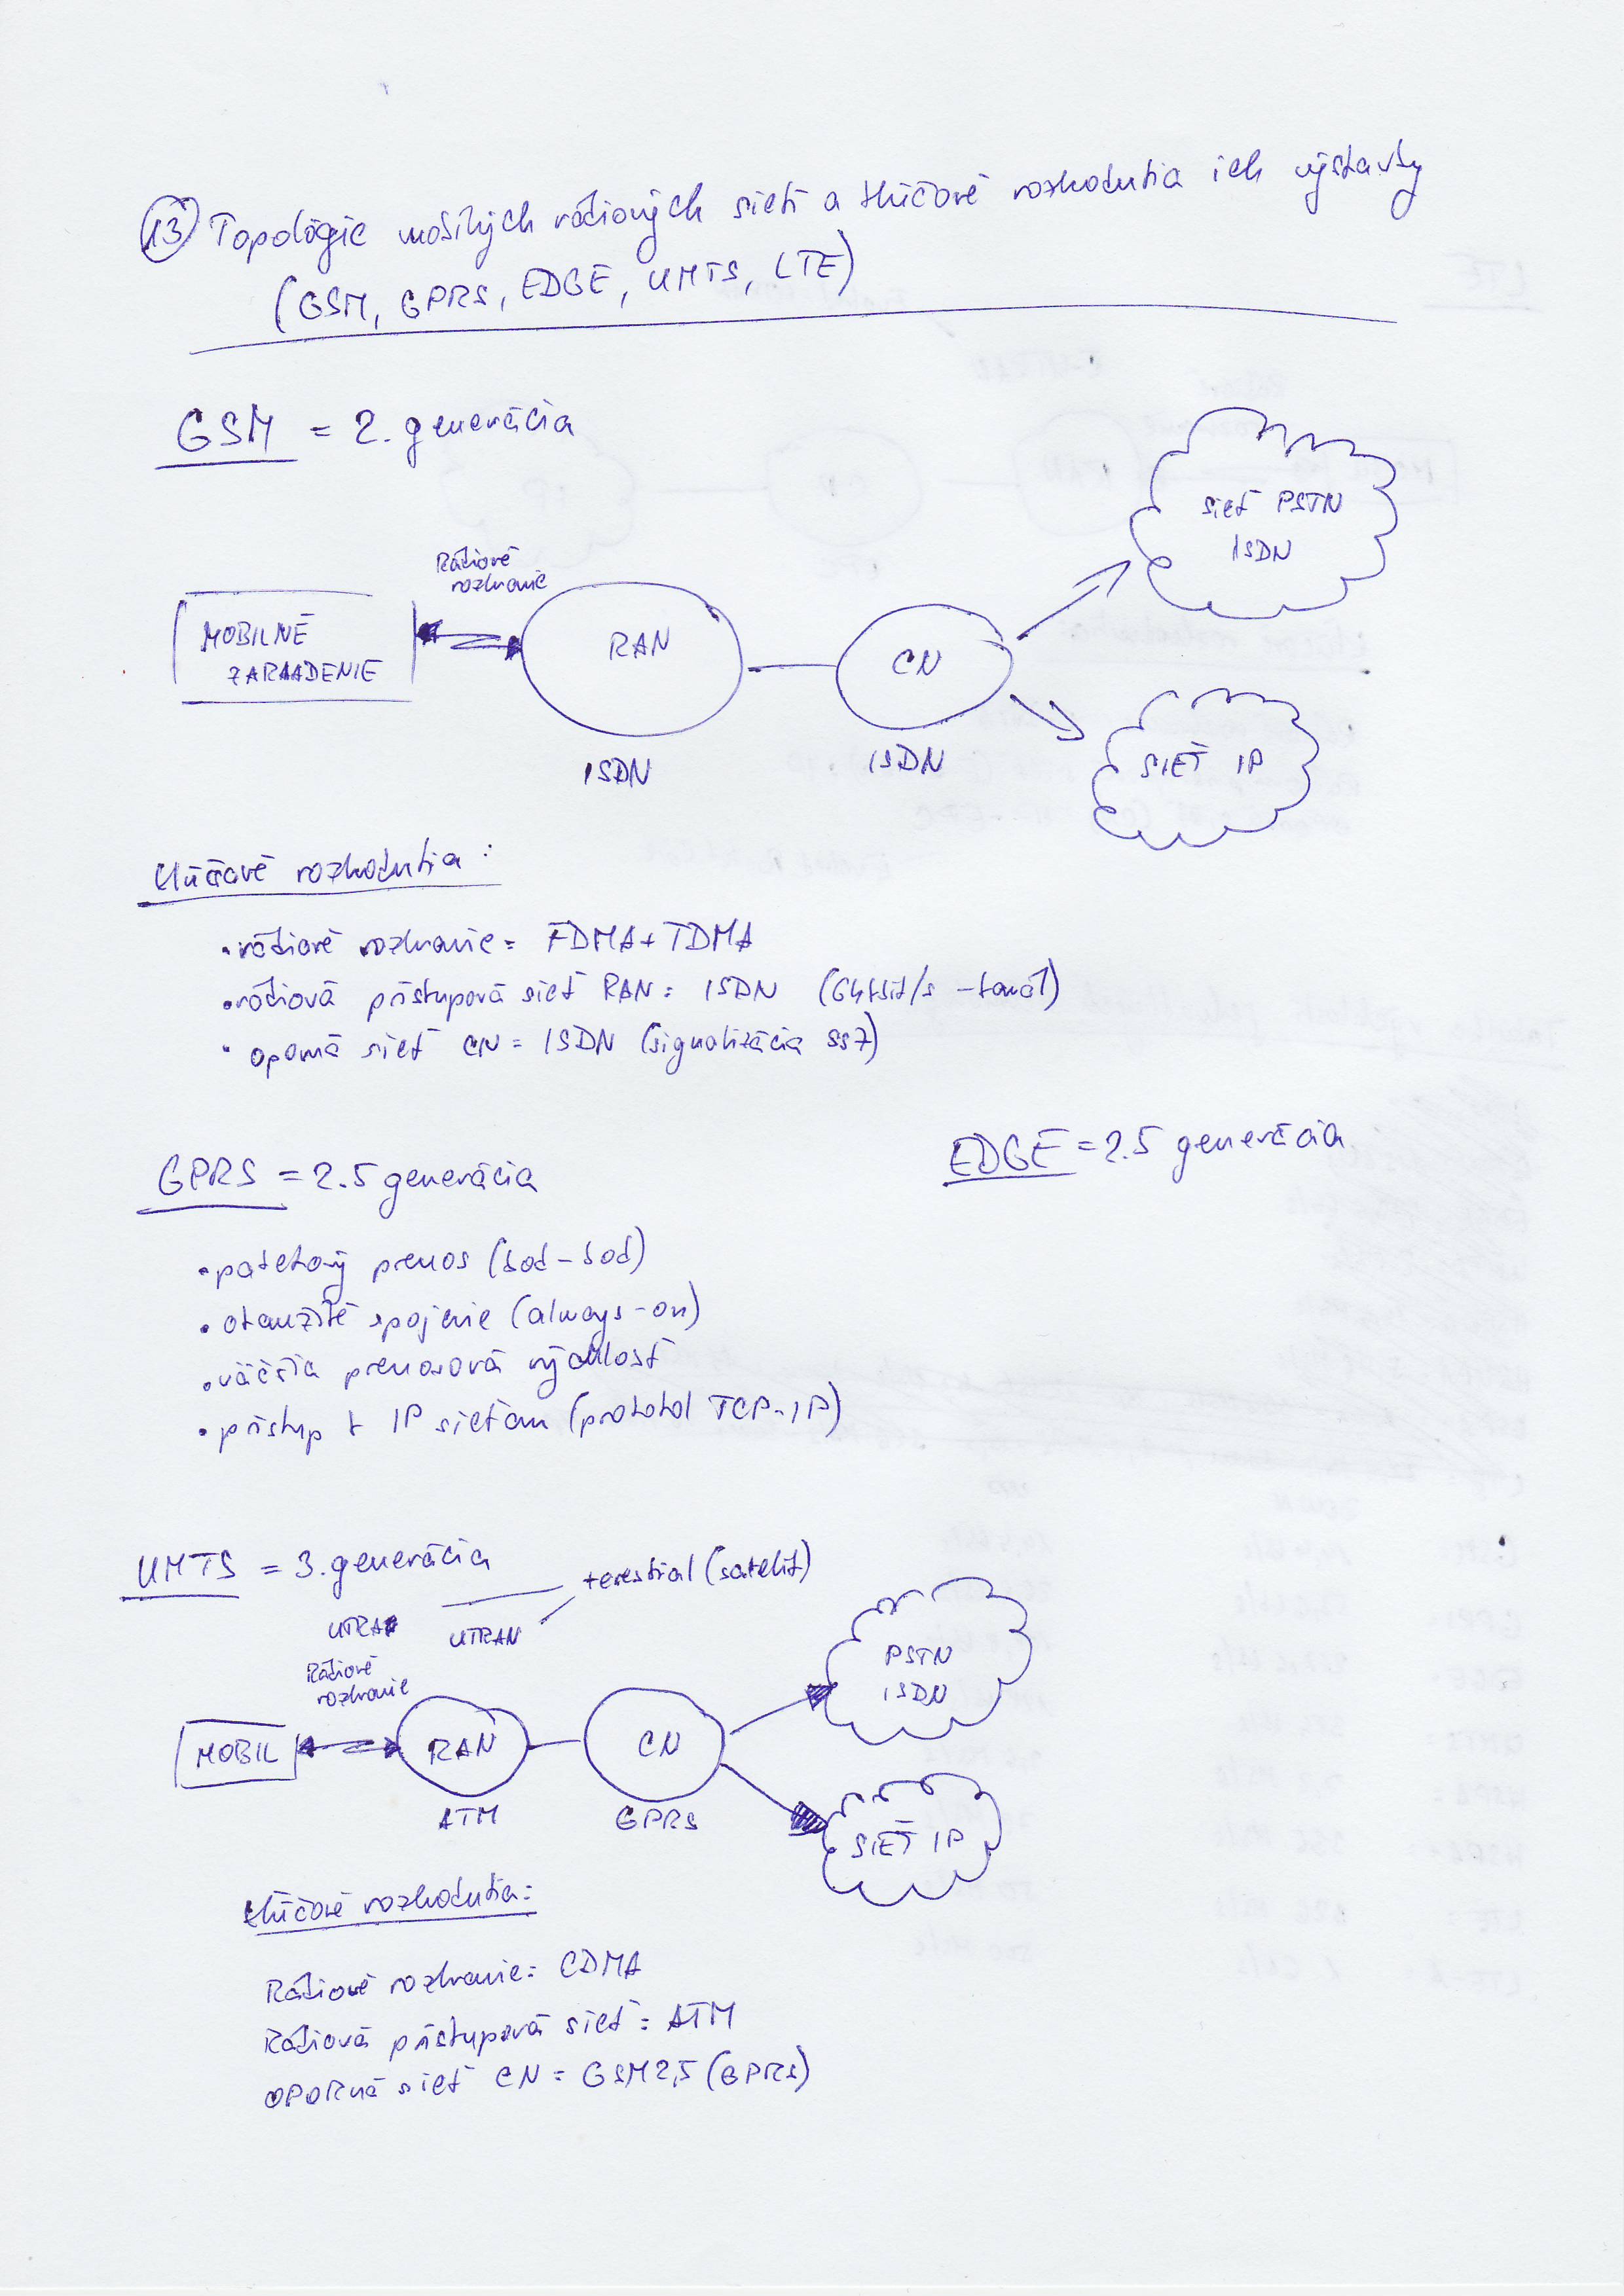 13 Topológie mobilných rádiových sietí a kľúčové rozhodutia ich výstavby
(GSM, GPRS, EDGE, UMTS, LTE)
GSM = 2. generácia
Rádiové
rozhranie
MOBILNÉ
ZARIADENIE
RAN
ISDN
CN
ISDN
sieť PSTN
ISDN
SIEŤ IP
Kľúčové rozhodutia:
• rádiové rozhranie = FDMA + TDMA
• rádiová prístupová sieť RAN = ISDN (64kbit/s - kanál)
• oporná sieť CN = ISDN (signalizácia SS7)
GPRS = 2.5 generácia
EDGE = 2.5 generácia
• paketový prenos (bod-bod)
• okamžité spojenie (always-on)
• väčšia prenosová rýchlosť
• prístup k IP sieťam (protokol TCP-IP)
UMTS = 3. generácia
terestrial (satelit)
UTRA
UTRAN
Rádiové
rozhranie
MOBIL
RAN
ATM
CN
GPRS
PSTN
ISDN
SIEŤ IP
kľúčové rozhodutia:
Rádiové rozhranie = CDMA
Rádiová prístupová sieť = ATM
OPORná sieť CN = GSM 2,5 (GPRS)